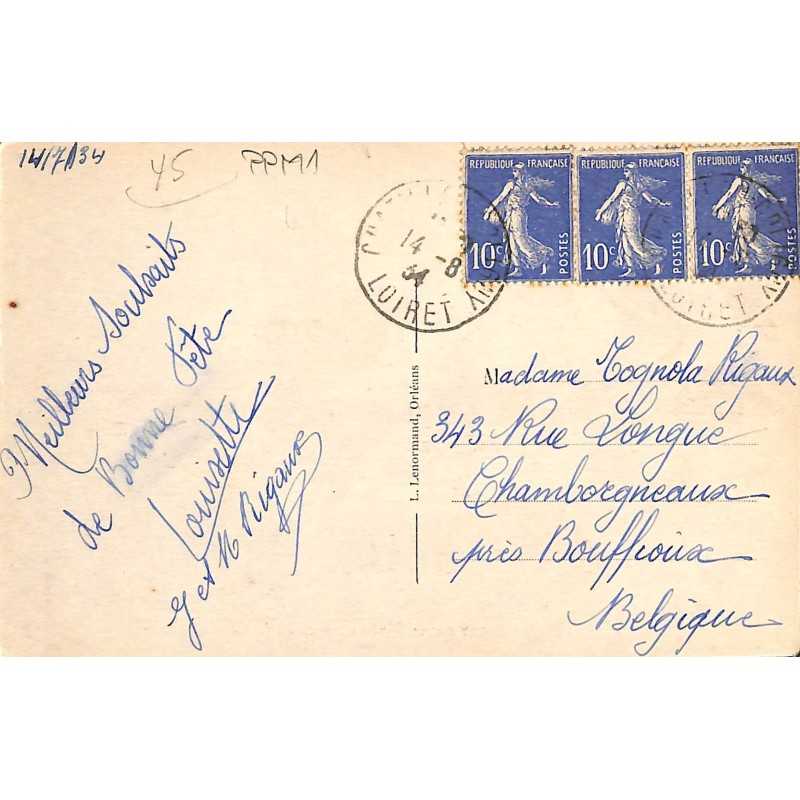 14/7/34
45
PPM1
RÉPUBLIQUE FRANÇAISE
10c
POSTES
RÉPUBLIQUE FRANÇAISE
10c
POSTES
RÉPUBLIQUE FRANÇAISE
10c
POSTES
14 -8
34
LOIRET
LOIRET
Meilleurs Souhaits
de Bonne Fête
Louisette
G et N Rigaux
L. Lenormand, Orléans
Madame Tognola Rigaux
343 Rue Longue
Chamborgneaux
près Bouffioux
Belgique